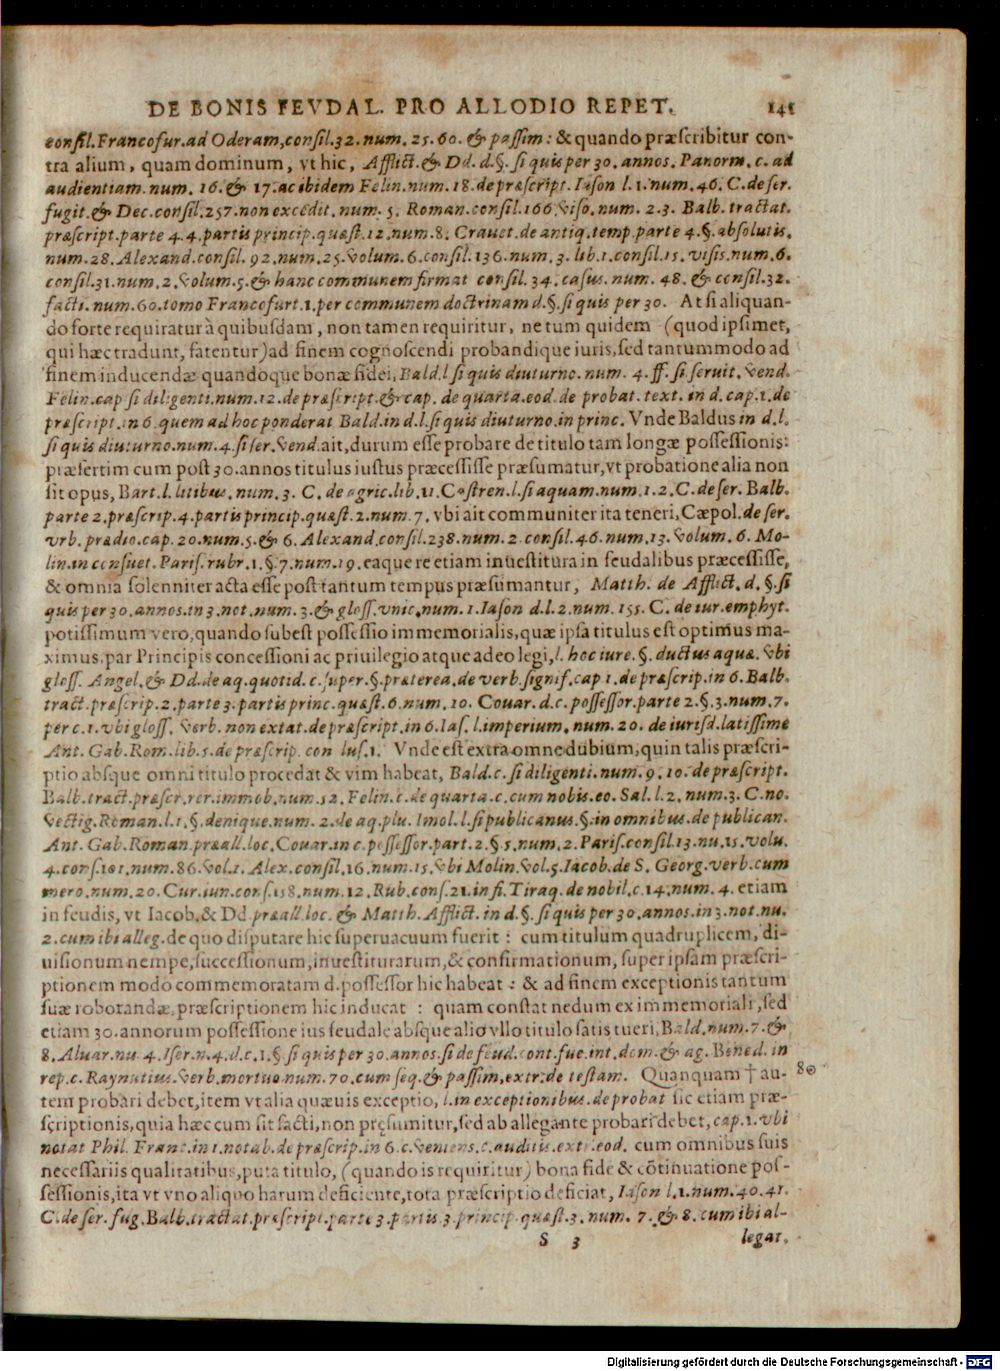 DE BONIS FEVDAL. PRO ALLODIO REPET. 141
consil. Francofur. ad Oderam, consil. 32. num. 25. 60. & passim: & quando præscribitur con-
tra alium, quam dominum, vt hic, Afflict. & Dd. d. §. si quis per 30. annos. Panorm. c. ad
audientiam. num. 16. & 17. ac ibidem Felin. num. 18. de præscript. Iason l. 1. num. 46. C. de ser.
fugit. & Dec. consil. 257. non excedit. num. 5. Roman. consil. 166 viso. num. 2. 3. Balb. tractat.
præscript. parte 4. 4. partis princip. quæst. 12. num. 8. Crauet. de antiq. temp. parte 4. §. absolutis.
num. 28. Alexand. consil. 92. num. 25. volum. 6. consil. 136. num. 3. lib. 1. consil. 15. visis. num. 6.
consil. 31. num. 2. volum. 5. & hanc communem firmat consil. 34. casus. num. 48. & consil. 32.
facti. num. 60. tomo Francofurt. 1. per communem doctrinam d. §. si quis per 30. At si aliquan-
do forte requiratur à quibusdam, non tamen requiritur, ne tum quidem (quod ipsimet,
qui hæc tradunt, fatentur) ad finem cognoscendi probandique iuris, sed tantummodo ad
finem inducendæ quandoque bonæ fidei, Bald. l si quis diuturno. num. 4. ff. si seruit. vend.
Felin. cap si diligenti. num. 12. de præscript. & cap. de quarta. eod. de probat. text. in d. cap. 1. de
præscript. in 6. quem ad hoc ponderat Bald. in d. l. si quis diuturno in princ. Vnde Baldus in d. l.
si quis diuturno. num. 4. si ser. vend. ait, durum esse probare de titulo tam longæ possessionis:
præsertim cum post 30. annos titulus iustus præcessisse præsumatur, vt probatione alia non
sit opus, Bart. l. litibus. num. 3. C. de agric. lib. 11. Castren. l. si aquam. num. 1. 2. C. de ser. Balb.
parte 2. præscrip. 4. partis princip. quæst. 2. num. 7. vbi ait communiter ita teneri, Cæpol. de ser.
vrb. prædio. cap. 20. num. 5. & 6. Alexand. consil. 238. num. 2. consil. 46. num. 13. volum. 6. Mo-
lin. in consuet. Paris. rubr. 1. §. 7. num. 19. eaque re etiam inuestitura in feudalibus præcessisse,
& omnia solenniter acta esse post tantum tempus præsumantur, Matth. de Afflict. d. §. si
quis per 30. annos. in 3. not. num. 3. & gloss. vnic. num. 1. Iason d. l. 2. num. 155. C. de iur. emphyt.
potissimum vero, quando subest possessio immemorialis, quæ ipsa titulus est optimus ma-
ximus, par Principis concessioni ac priuilegio atque adeo legi, l. hoc iure. §. ductus aquæ. vbi
gloss. Angel. & Dd. de aq. quotid. c. super. §. præterea. de verb. signif. cap 1. de præscrip. in 6. Balb.
tract. præscrip. 2. parte 3. partis princ. quæst. 6. num. 10. Couar. d. c. possessor. parte 2. §. 3. num. 7.
per c. 1. vbi gloss. verb. non extat. de præscript. in 6. Ias. l. imperium. num. 20. de iurisd. latissime
Ant. Gab. Rom. lib. 5. de præscrip. con lus. 1. Vnde est extra omne dubium, quin talis præscri-
ptio absque omni titulo procedat & vim habeat, Bald. c. si diligenti. num. 9. 10. de præscript.
Balb. tract. præscr. rer. immob. num. 12. Felin. c. de quarta. c. cum nobis. eo. Sal. l. 2. num. 3. C. no.
vectig. Roman. l. 1. §. denique. num. 2. de aq. plu. Imol. l. si publicanus. §. in omnibus. de publican.
Ant. Gab. Roman. præall. loc. Couar. in c. possessor. part. 2. § 5. num. 2. Paris. consil. 13. nu. 15. volu.
4. cons. 101. num. 86. vol. 1. Alex. consil. 16. num. 15. vbi Molin. vol. 5. Iacob. de S. Georg. verb. cum
mero. num. 20. Cur. iun. cons. 158. num. 12. Rub. cons. 21. in fi. Tiraq. de nobil. c. 14. num. 4. etiam
in feudis, vt Iacob. & Dd. præall. loc. & Matth. Afflict. in d. §. si quis per 30. annos. in 3. not. nu.
2. cum ibi alleg. de quo disputare hic superuacuum fuerit: cum titulum quadruplicem, di-
uisionum nempe, successionum, inuestiturarum, & confirmationum, super ipsam præscri-
ptionem modo commemoratam d. possessor hic habeat: & ad finem exceptionis tantum
suæ roborandæ, præscriptionem hic inducat: quam constat nedum ex immemoriali, sed
etiam 30. annorum possessione ius feudale absque alio vllo titulo satis tueri, Bald. num. 7. &
8. Aluar. nu 4. Iser. n. 4. d. c. 1. § si quis per 30. annos. si de feud. cont. fue. int. dom. & ag. Bened. in
rep. c. Raynutius. verb. mortuo num. 70. cum seq. & passim, extr. de testam. Quanquam † au- 80
tem probari debet, item vt alia quæuis exceptio, l. in exceptionibus. de probat sic etiam præ-
scriptionis, quia hæc cum sit facti, non præsumitur, sed ab allegante probari debet, cap. 1. vbi
notat Phil. Franc. in 1. notab. de præscrip. in 6. c. veniens. c. auditis. extr. eod. cum omnibus suis
necessariis qualitatibus, puta titulo, (quando is requiritur) bona fide & cōtinuatione pos-
sessionis, ita vt vno aliquo harum deficiente, tota præscriptio deficiat, Iason l. 1. num. 40. 41.
C. de ser. fug. Balb. tractat. præscript. parte 3. partis 3. princip. quæst. 3. num. 7. & 8. cum ibi al-
S 3 legat.
Digitalisierung gefördert durch die Deutsche Forschungsgemeinschaft - DFG